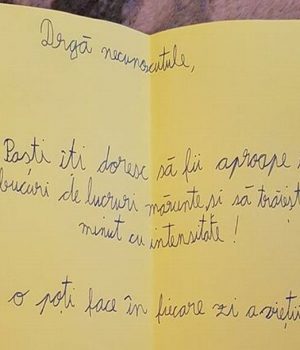 Drgă necunoscutule,
Paști îți doresc să fii aproape
bucuri de lucruri mărunte și să trăiești
minut cu intensitate!
o poți face în fiecare zi a vieții